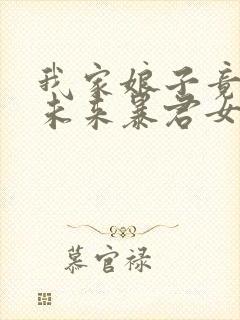 我家娘子竟
未来暴君女
慕官禄